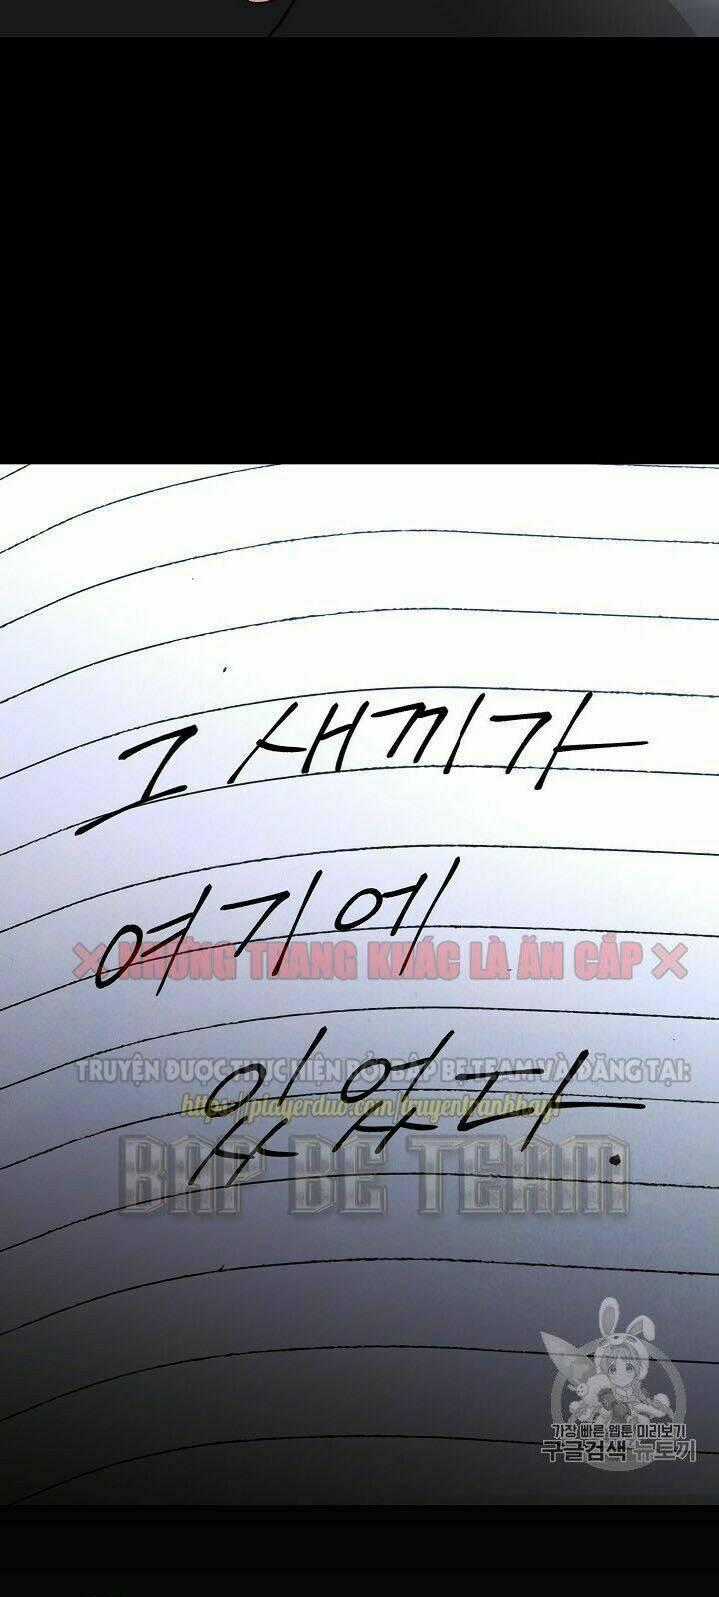 그 새끼가
여기에
× NHỮNG TRANG KHÁC LÀ ĂN CẮP ×
있었다.
TRUYỆN ĐƯỢC THỰC HIỆN BỞI BẮP BE TEAM VÀ ĐĂNG TẠI:
https://playerduo.com/truyentranhhay
BAP BE TEAM
가장 빠른 웹툰 미리보기
구글검색 뉴토끼